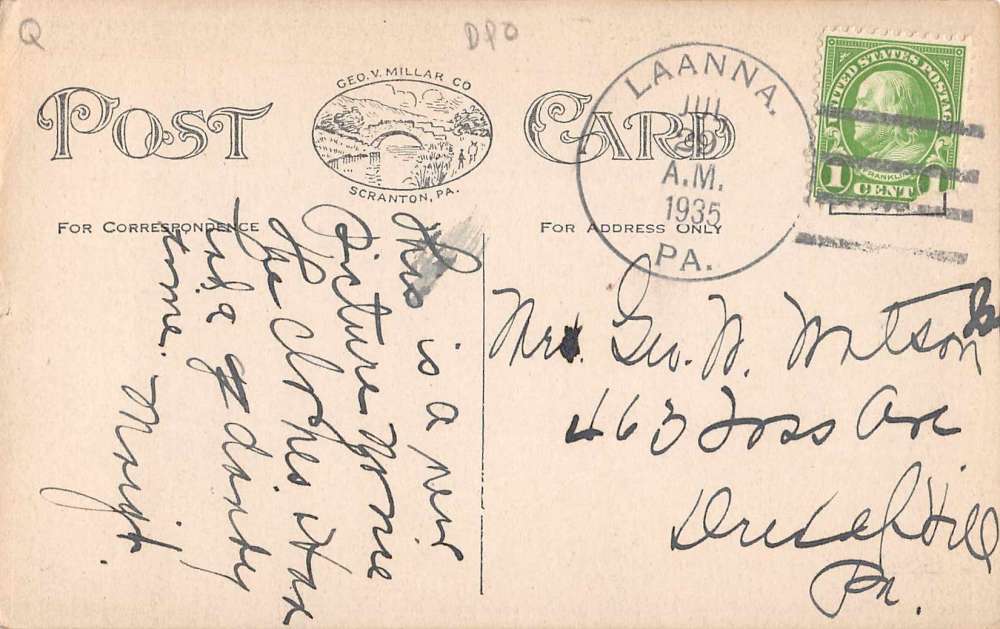 Q
DPO
POST CARD
GEO. V. MILLAR CO
SCRANTON, PA.
FOR CORRESPONDENCE
FOR ADDRESS ONLY
LAANNA.
JUL
29
A.M.
1935
PA.
UNITED STATES POSTAGE
FRANKLIN
1 CENT 1
This is a new
Picture
The
Had a dandy
time. Margt.
Mrs. Geo. W. Watson
463 Foss Ave
Drexel Hill
Pa.